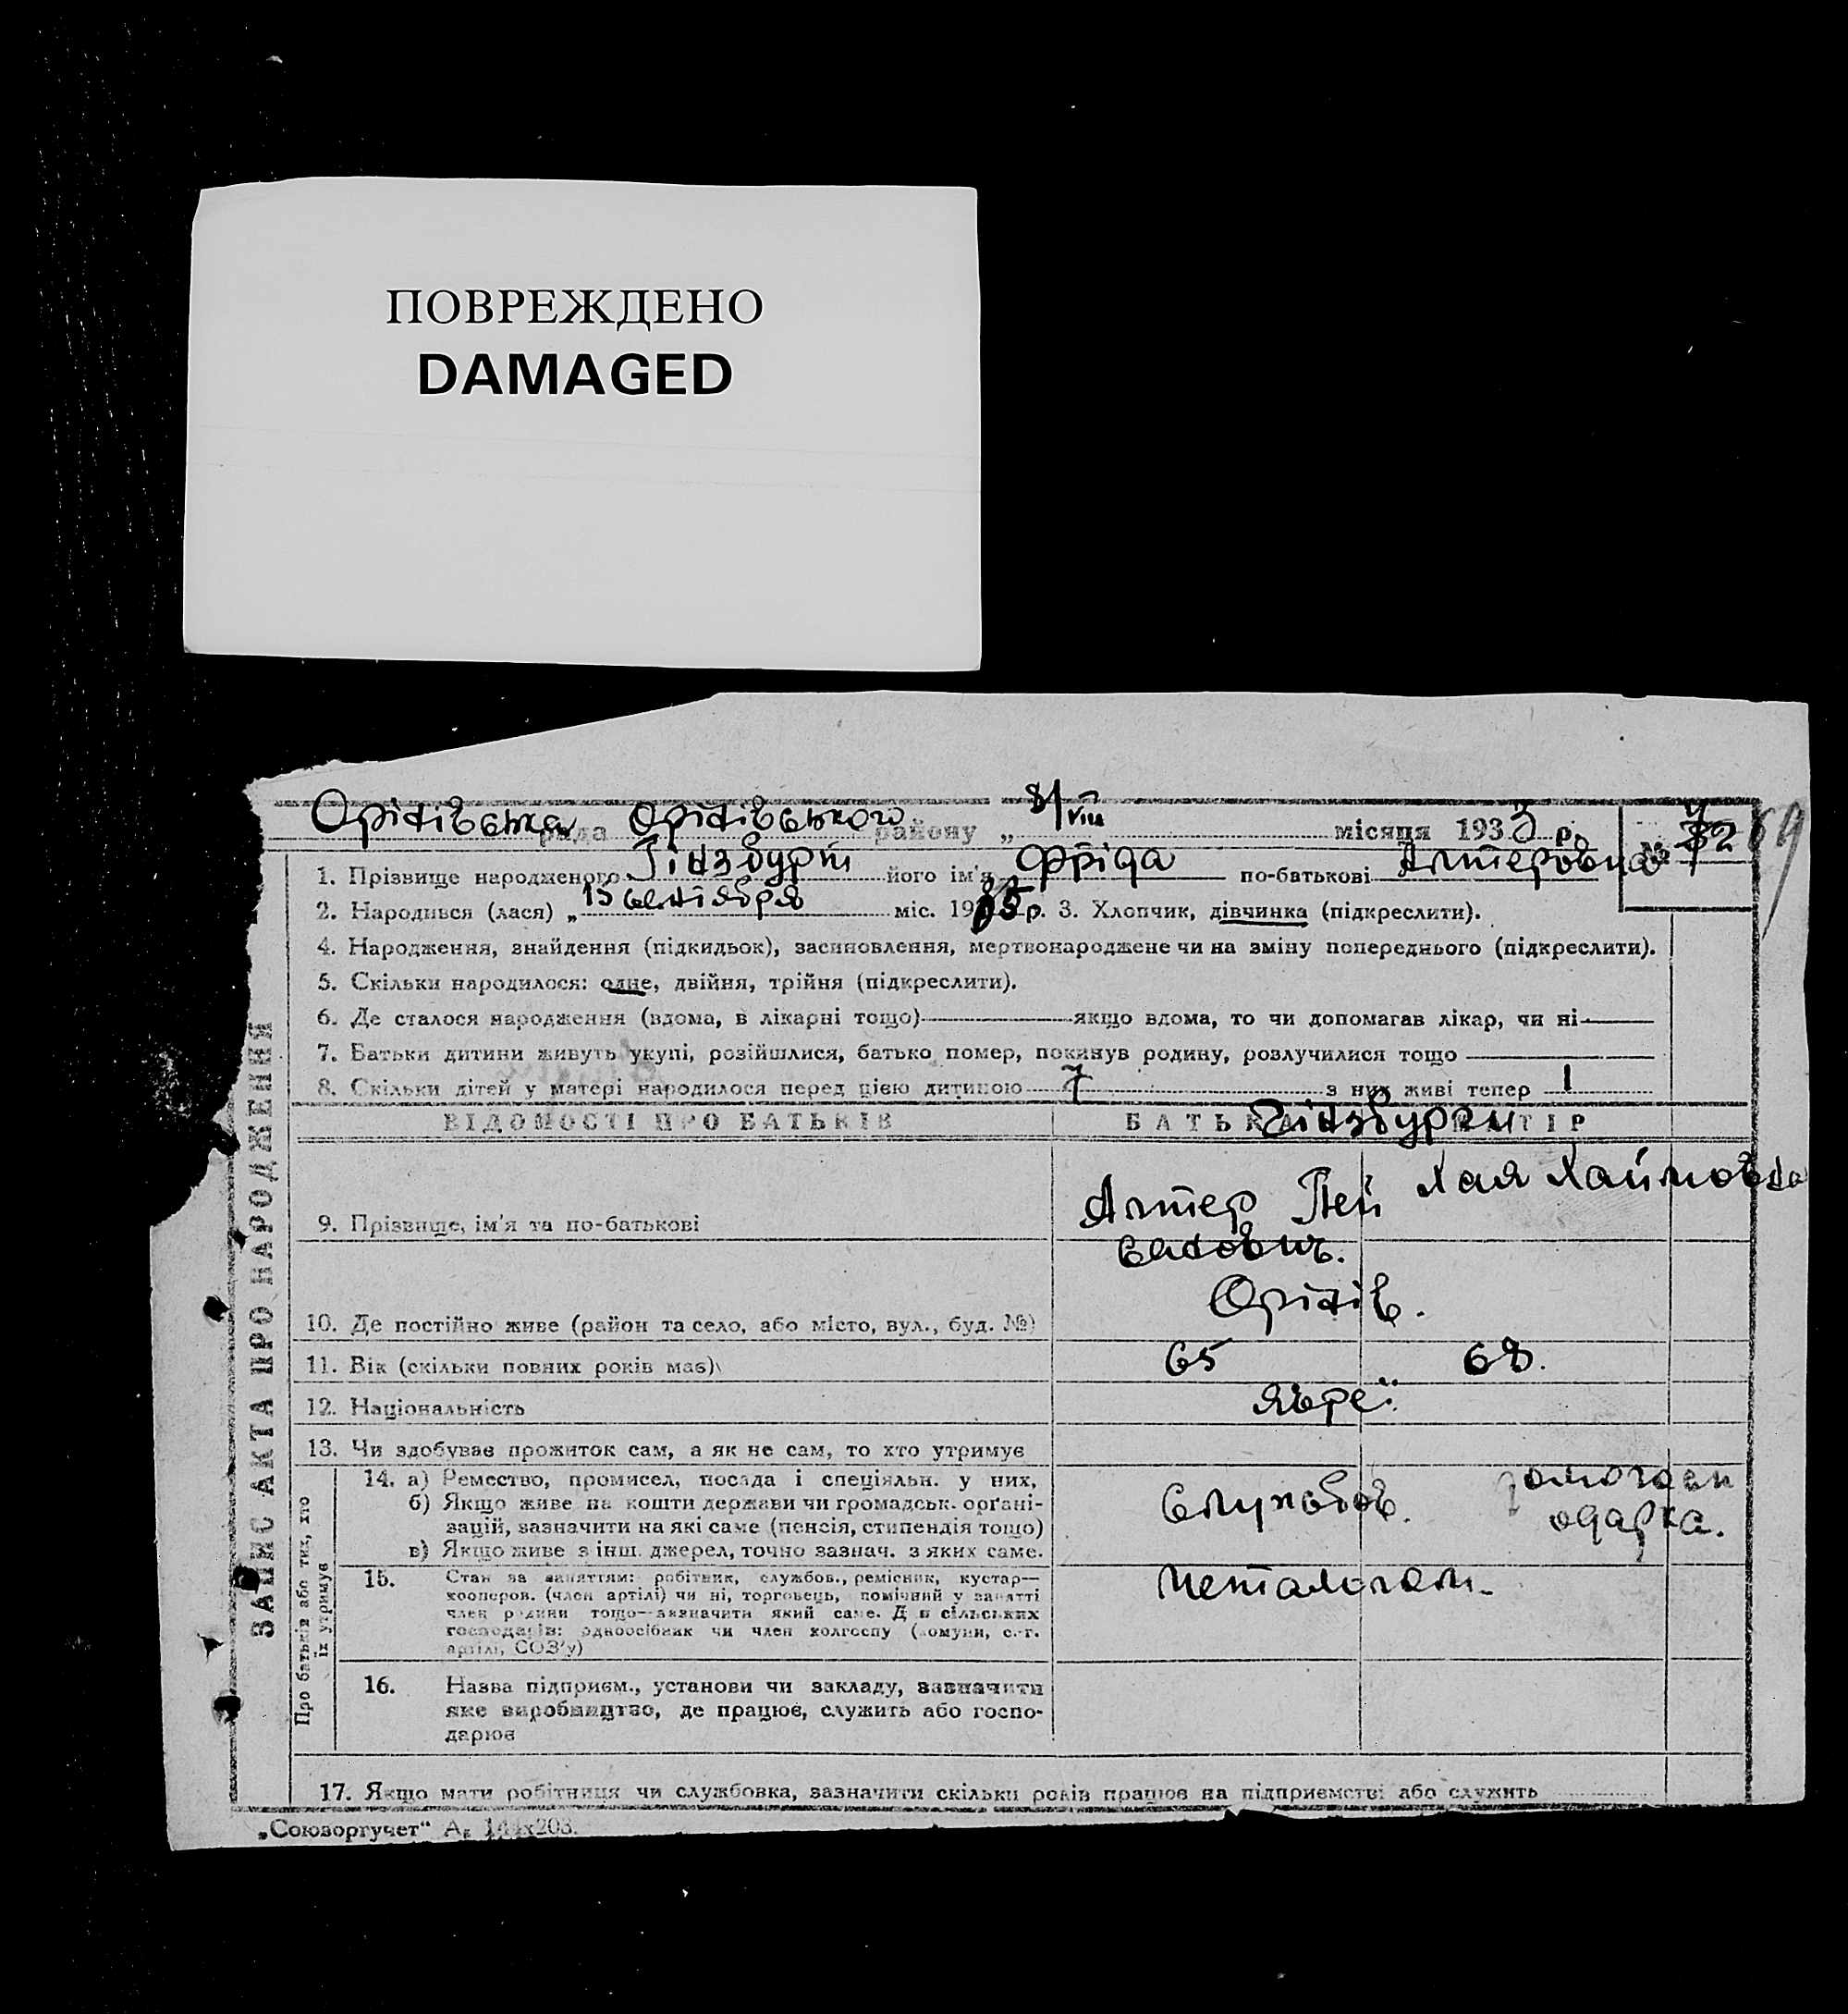 ПОВРЕЖДЕНО
DAMAGED
Орінівська рада Орінівського району „ 8/VIII місяця 1933 р.
№ 32
69
1. Прізвище народженого Гінзбург його ім'я Фріда по-батькові Алтеровна
2. Народився (лася) „ 15 сентября міс. 19 р. 3. Хлопчик, дівчинка (підкреслити).
4. Народження, знайдення (підкидьок), засиновлення, мертвонароджене чи на зміну попереднього (підкреслити).
5. Скільки народилося: одне, двійня, трійня (підкреслити).
6. Де сталося народження (вдома, в лікарні тощо) — якщо вдома, то чи допомагав лікар, чи ні —
7. Батьки дитини живуть укупі, розійшлися, батько помер, покинув родину, розлучилися тощо —
8. Скільки дітей у матері народилося перед цією дитиною 7 з них живі тепер 1
ВІДОМОСТІ ПРО БАТЬКІВ БАТЬКА МАТІР
Гінзбург
9. Прізвище, ім'я та по-батькові Алтер Пейсахович. Хая Хаймовна
10. Де постійно живе (район та село, або місто, вул., буд. №) Орінів.
11. Вік (скільки повних років має) 65 68.
12. Національність явреї
13. Чи здобуває прожиток сам, а як не сам, то хто утримує
Про батьків або тих, хто їх утримує
14. а) Ремество, промисел, посада і спеціяльн. у них,
б) Якщо живе на кошти держави чи громадськ. органі-
зацій, зазначити на які саме (пенсія, стипендія тощо)
в) Якщо живе з інш. джерел, точно зазнач. з яких саме.
службов.
15. Стан за заняттям: робітник, службов., ремісник, кустар—
кооперов. (член артілі) чи ні, торговець, помічний у занятті
член родини тощо—зазначити який саме. Для сільських
господарів: одноосібник чи член колгоспу (комуни, с.-г.
артілі, СОЗ'у)
16. Назва підприєм., установи чи закладу, зазначити
яке виробництво, де працює, служить або госпо-
дарює
17. Якщо мати робітниця чи службовка, зазначити скільки років працює на підприємстві або служить
ЗАПИС АКТА ПРО НАРОДЖЕННЯ
„Союзоргучет" А₅ 144х203.